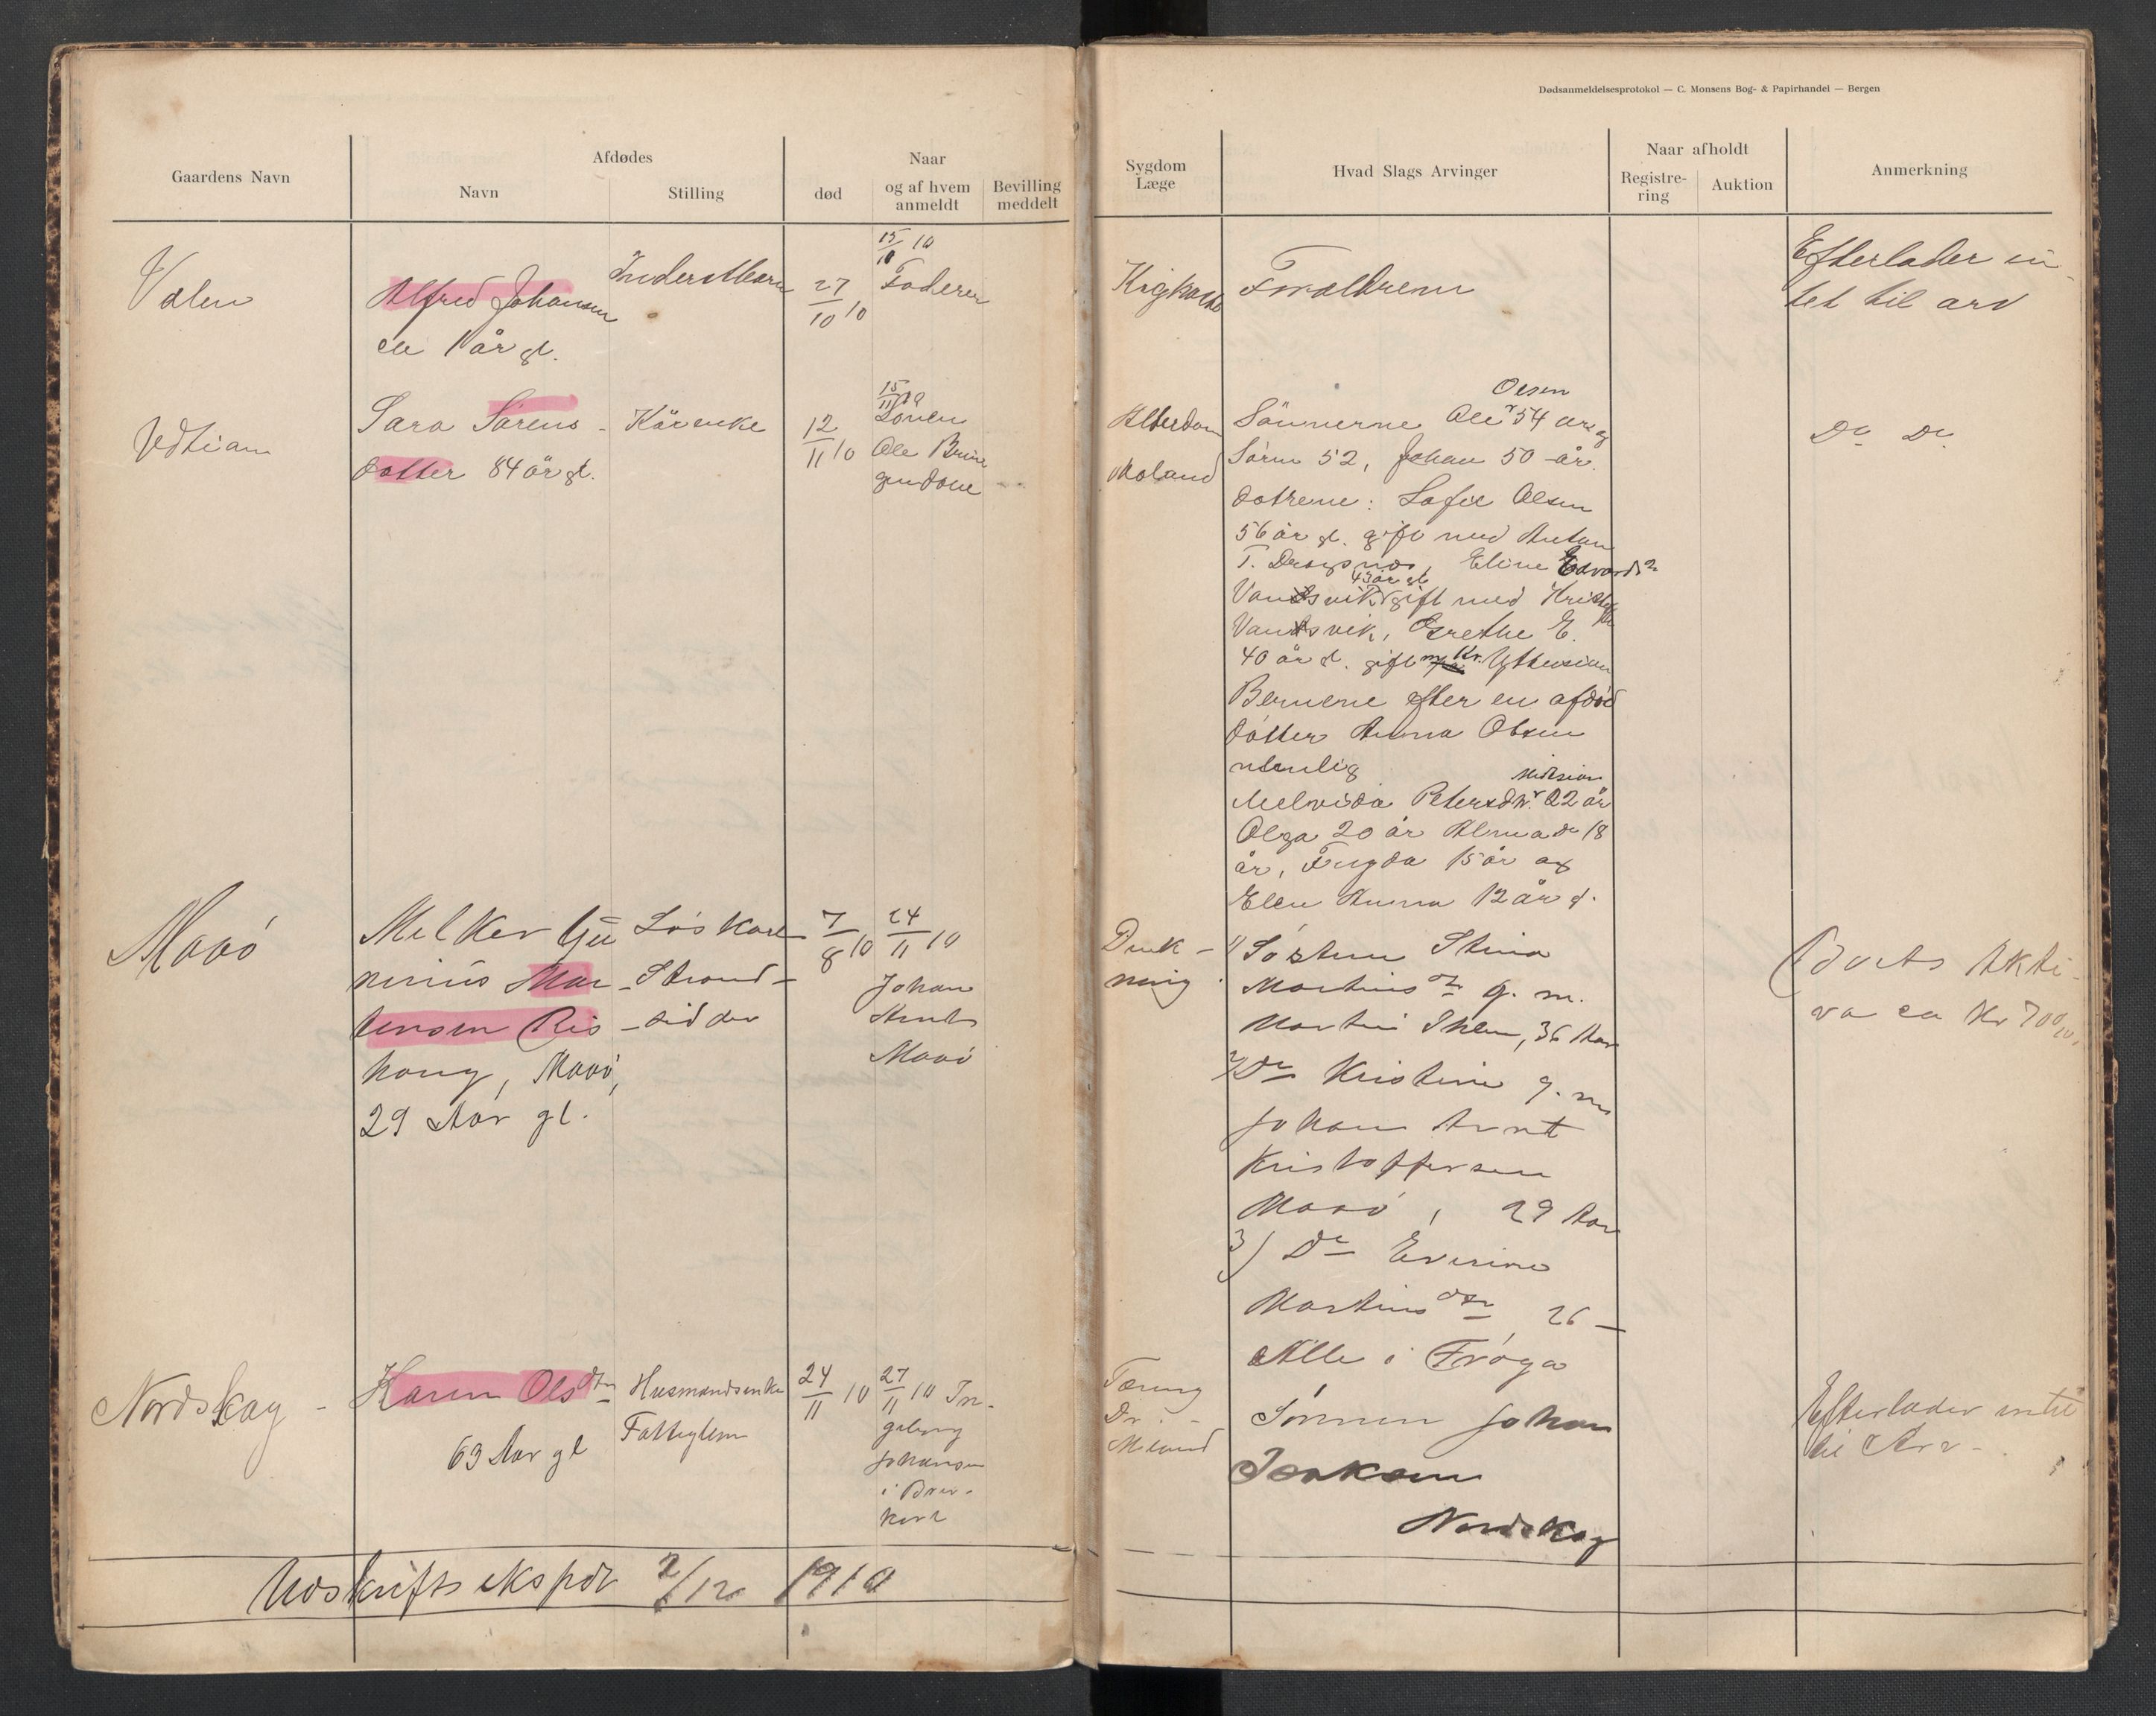 Dødsanmeldelsesprotokol — C. Monsens Bog- & Papirhandel — Bergen
Gaardens Navn
Afdødes
Navn
Stilling
Naar
død
og af hvem
anmeldt
Bevilling
meddelt
Sygdom
Læge
Hvad Slags Arvinger
Naar afholdt
Registre-
ring
Auktion
Anmerkning
Valen
Alfred Johansen
1 år gl.
27/10 10
15/10 10
Faderen
Forældrene
Efterlader in-
tet til arv
Sara Sørens-
datter 84 år gl.
Kårenke
12/11 10
15/11 10
Sønnen
Ole
Alderdom
Sønnerne Ole Olsen 54 år og
Søren 52, Johan 50 år.
døtrene: Sofie Olsen
56 år gl. gift med Anton
T. Eline Edvards
Vandsvik 43 år gl gift med
Vandsvik, Grethe E.
40 år gl. gift m Kr.
Børnene efter en afdød
datter Anna Olsen
nemlig
Melvida Petersdtr. 22 år
Olga 20 år Alma do 18
år, Frugda 15 år og
Elen Anna 12 år g.
Do Do
Maaø
Melker Gu
nerius Mar-
tensen Ris
haug, Maaø,
29 Aar gl.
Løskarl
Strand-
sidder
7/8 10
24/11 10
Johan
Arnt
Maaø
Druk-
ning
1) Søsteren Stina
Martinsdtr g. m.
36 Aar
2) Do Kristine g. m
Johan Arnt
Kristoffersen
Maaø, 29 Aar
3) Do Everine
Martinsdtr 26 —
Alle i Frøya
Boets Akti-
va ca Kr 700
Nordskag -
Karen Olsdtr
63 Aar gl
Husmandsenke
Fattiglem
24/11 10
27/11 10 In-
geborg
Johansen
Tæring
Dr.
Sønnen Johan
Joakim
Nordskag
Efterlader intet
til Arv -
Udskrifts ekspdt 2/12 1910